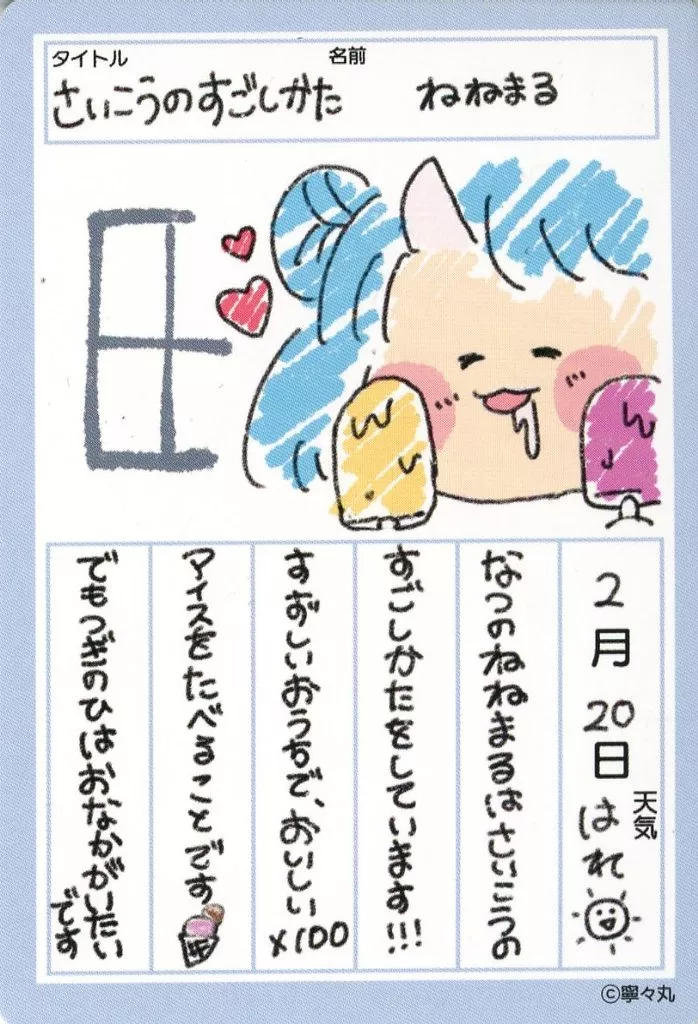 タイトル
名前
さいこうのすごしかた
ねねまる
2月20日
天気
はれ
なつのねねまるはさいこうの
すごしかたをしています!!!
すずしいおうちで、おいしい
×100
アイスをたべることです
でもつぎのひはおなかがいたい
です
©寧々丸